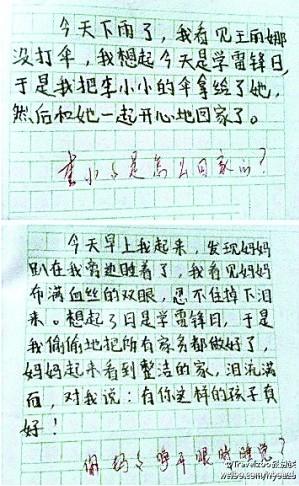 今天下雨了，我看见王雨娜
没打伞，我想起今天是学雷锋日，
于是我把李小小的伞拿给了她，
然后和她一起开心地回家了。
李小々是怎么回家的？
今天早上我起来，发现妈妈
趴在我旁边睡着了，我看见妈妈
布满血丝的双眼，忍不住掉下泪
来。想起了日是学雷锋日，于是
我偷偷地把所有家务都做好了，
妈妈起来看到整洁的家，泪流满
面，对我说：有你这样的孩子真
好！
你妈々睁开眼睛睡觉？